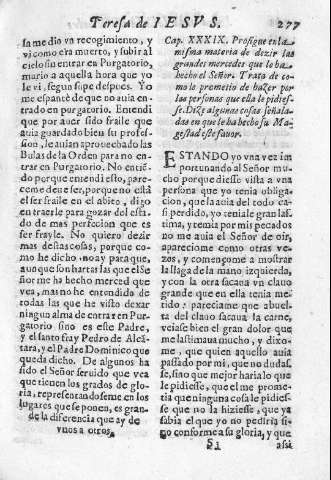 Teresa de IESVS. 277
sa me dio vn recogimiento, y
vi como era muerto, y subir al
cielo sin entrar en Purgatorio,
murio a aquella hora que yo
le vi, segun supe despues. Yo
me espantè de que no auia en-
trado en purgatorio. Entendi
que por auer sido fraile que
auia guardado bien su profes-
sion, le auian aprouechado las
Bulas de la Orden para no en-
trar en Purgatorio. No enti[ẽ]-
do porque entendi esto, pare-
ceme deue ser, porque no està
el ser fraile en el abito, digo
en traerle para gozar del esta-
do de mas perfeccion que es
ser frayle. No quiero dezir
mas destas cosas, porque co-
mo he dicho, no ay para que,
aunque son hartas las que el Se
ñor me ha hecho merced que
vea, mas no he entendido de
todas las que he visto dexar
ningun alma de entrar en Pur-
gatorio sino es este Padre,
y el santo fray Pedro de Alcã-
tara, y el Padre Dominico que
queda dicho. De algunos ha
sido el Señor seruido que vea
que tienen los grados de glo-
ria, representandoseme en los
lugares que se ponen, es gran-
de la diferencia que ay de
vnos a otros.
Cap. XXXIX. Prosigue en la
misma materia de dezir las
grandes mercedes que le ha
hecho el Señor. Trata de co-
mo le prometio de hazer por
las personas que ella le pidies-
se. Dize algunas cosas señala-
das en que le ha hecho su Ma-
gestad este fauor.
ESTANDO yo vna vez im
portunando al Señor mu-
cho porque diesse vista a vna
persona que yo tenia obliga-
cion, que la auia del todo ca-
si perdido, yo teniale gran las-
tima, y temia por mis pecados
no me auia el Señor de oir,
apareciome como otras ve-
zes, y començome a mostrar
la llaga de la mano izquierda,
y con la otra sacaua vn clauo
grande que en ella tenia me-
tido: pareciame que abuel-
ta del clauo sacaua la carne,
veiase bien el gran dolor que
me lastimaua mucho, y dixo-
me, que quien aquello auia
passado por mi, que no dudas-
se, sino que mejor haria lo que
le pidiesse, que el me prome-
tia que ninguna cosa le pidies-
se que no la hiziesse, que ya
sabia el que yo no pediria si-
no conforme a su gloria, y que
S3 assi